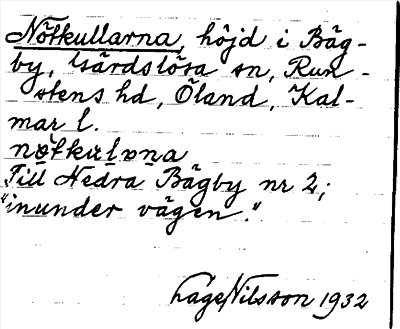 Nötkullarna, höjd i Bäg-
by, Gärdslösa sn, Run-
stens hd, Öland, Kal-
mar l.
Till Nedra Bägby nr 2;
"inunder vägen."
Hage Nilsson 1932